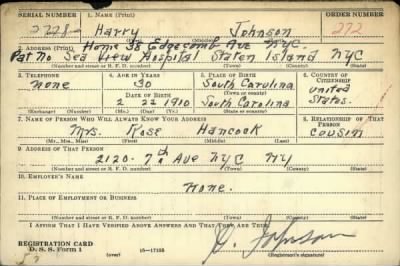 SERIAL NUMBER 1. NAME (Print) ORDER NUMBER
2728 Harry Johnson 272
2. ADDRESS (Print) Home 38 Edgecomb Ave NYC.
Pat no Sea View Hospital Staten Island NYC
(Number and street or R. F. D. number) (Town) (County) (State)
3. TELEPHONE 4. AGE IN YEARS 5. PLACE OF BIRTH 6. COUNTRY OF CITIZENSHIP
none 30 South Carolina United
DATE OF BIRTH (Town or county)
2 22 1910 South Carolina States.
(Exchange) (Number) (Mo.) (Day) (Yr.) (State or country)
7. NAME OF PERSON WHO WILL ALWAYS KNOW YOUR ADDRESS 8. RELATIONSHIP OF THAT PERSON
Mrs. Rose Hancock cousin
(Mr., Mrs., Miss) (First) (Middle) (Last)
9. ADDRESS OF THAT PERSON
2120- 7th Ave NYC NY
(Number and street or R. F. D. number) (Town) (County) (State)
10. EMPLOYER'S NAME
None.
11. PLACE OF EMPLOYMENT OR BUSINESS
(Number and street or R. F. D. number) (Town) (County) (State)
I AFFIRM THAT I HAVE VERIFIED ABOVE ANSWERS AND THAT THEY ARE TRUE.
REGISTRATION CARD
D. S. S. Form 1 (over) 16—17105 Johnson
(Registrant's signature)